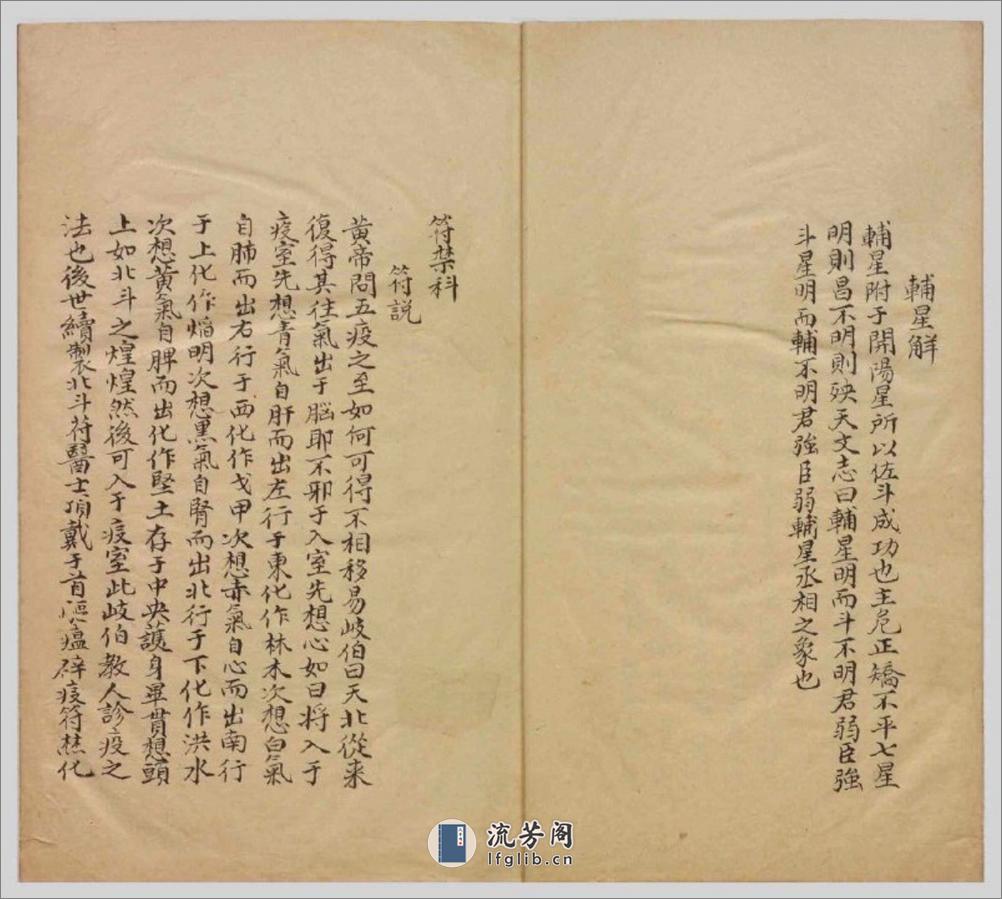 輔星解
輔星附于開陽星所以佐斗成功也主危正矯不平七星
明則昌不明則殃天文志曰輔星明而斗不明君弱臣強
斗星明而輔不明君強臣弱輔星丞相之象也
符禁科
符説
黄帝問五疫之至如何可得不相移易岐伯曰天北從来
復得其往氣出于腦耶不邪于入室先想心如日将入于
疫室先想青氣自肝而出左行于東化作林木次想白氣
自肺而出右行于西化作戈甲次想赤氣自心而出南行
于上化作焰明次想黒氣自腎而出北行于下化作洪水
次想黄氣自脾而出化作堅土存于中央護身畢貫想頭
上如北斗之煌煌然後可入于疫室此岐伯教人診疫之
法也後世續製北斗符醫士頂戴于首漚瘟辟疫符焚化
流芳阁
lfglib.cn